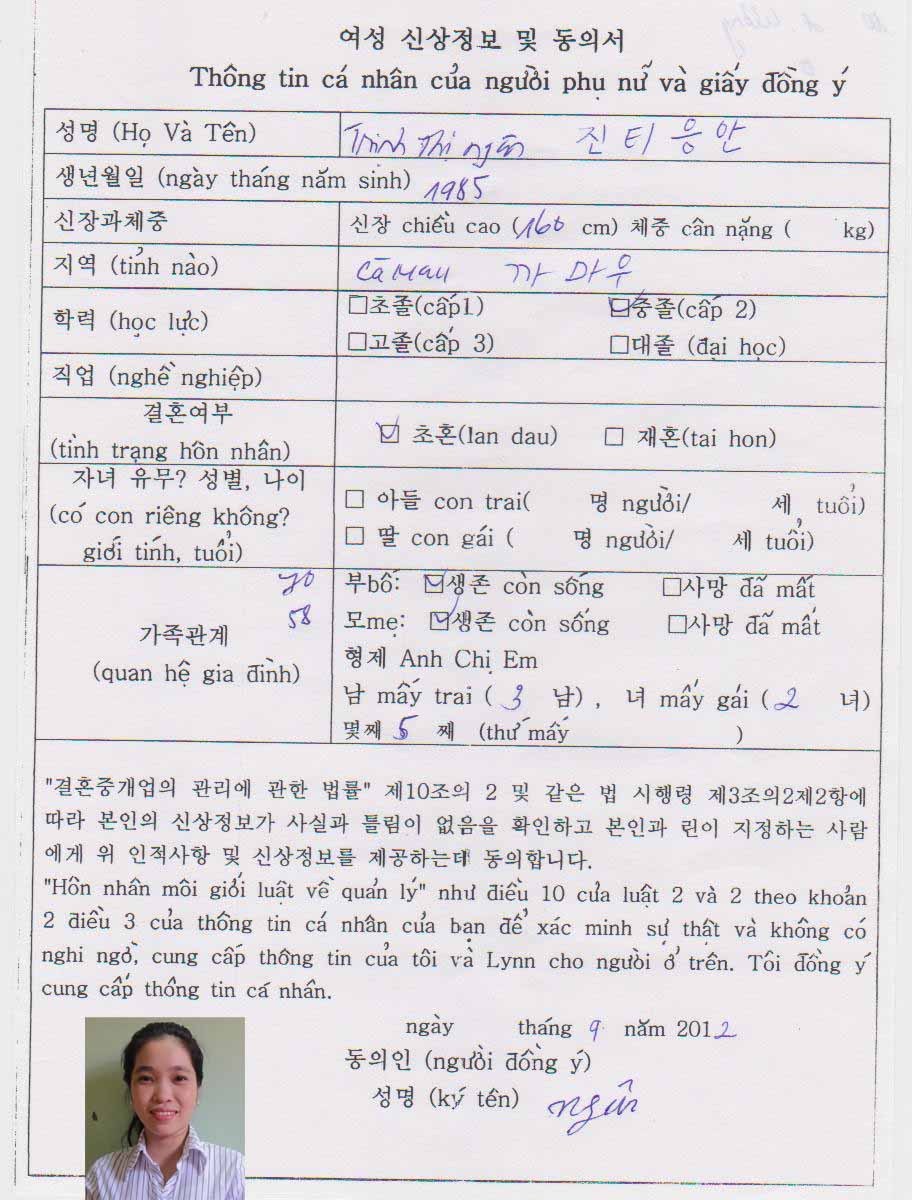 여성 신상정보 및 동의서
Thông tin cá nhân của người phụ nữ và giấy đồng ý
성명 (Họ Và Tên) Trịnh Thị ngân 진 티 응 안
생년월일 (ngày tháng năm sinh) 1985
신장과체중 신장 chiều cao (160 cm) 체중 cân nặng ( kg)
지역 (tỉnh nào) Cà Mau 까 마 우
학력 (học lực)
☐초졸(cấp1) ☑중졸(cấp 2)
☐고졸(cấp 3) ☐대졸 (đại học)
직업 (nghề nghiệp)
결혼여부
(tình trạng hôn nhân)
☑ 초혼(lan dau) ☐ 재혼(tai hon)
자녀 유무? 성별, 나이
(có con riêng không?
giới tính, tuổi)
☐ 아들 con trai( 명 người/ 세 tuổi)
☐ 딸 con gái ( 명 người/ 세 tuổi)
가족관계
(quan hệ gia đình)
70 부bố: ☑생존 còn sống ☐사망 đã mất
58 모mẹ: ☑생존 còn sống ☐사망 đã mất
형제 Anh Chị Em
남 mấy trai ( 3 남) , 녀 mấy gái ( 2 녀)
몇째 5 째 (thứ mấy )
"결혼중개업의 관리에 관한 법률" 제10조의 2 및 같은 법 시행령 제3조의2제2항에
따라 본인의 신상정보가 사실과 틀림이 없음을 확인하고 본인과 린이 지정하는 사람
에게 위 인적사항 및 신상정보를 제공하는데 동의합니다.
"Hôn nhân môi giới luật về quản lý" như điều 10 của luật 2 và 2 theo khoản
2 điều 3 của thông tin cá nhân của bạn để xác minh sự thật và không có
nghi ngờ, cung cấp thông tin của tôi và Lynn cho người ở trên. Tôi đồng ý
cung cấp thông tin cá nhân.
ngày tháng 9 năm 2012
동의인 (người đồng ý)
성명 (ký tên) ngân